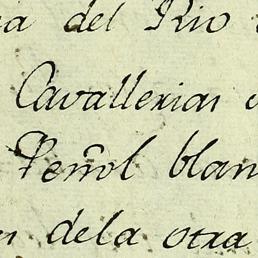 a del Rio
Cavallerias
Peñol blan
n dela otra